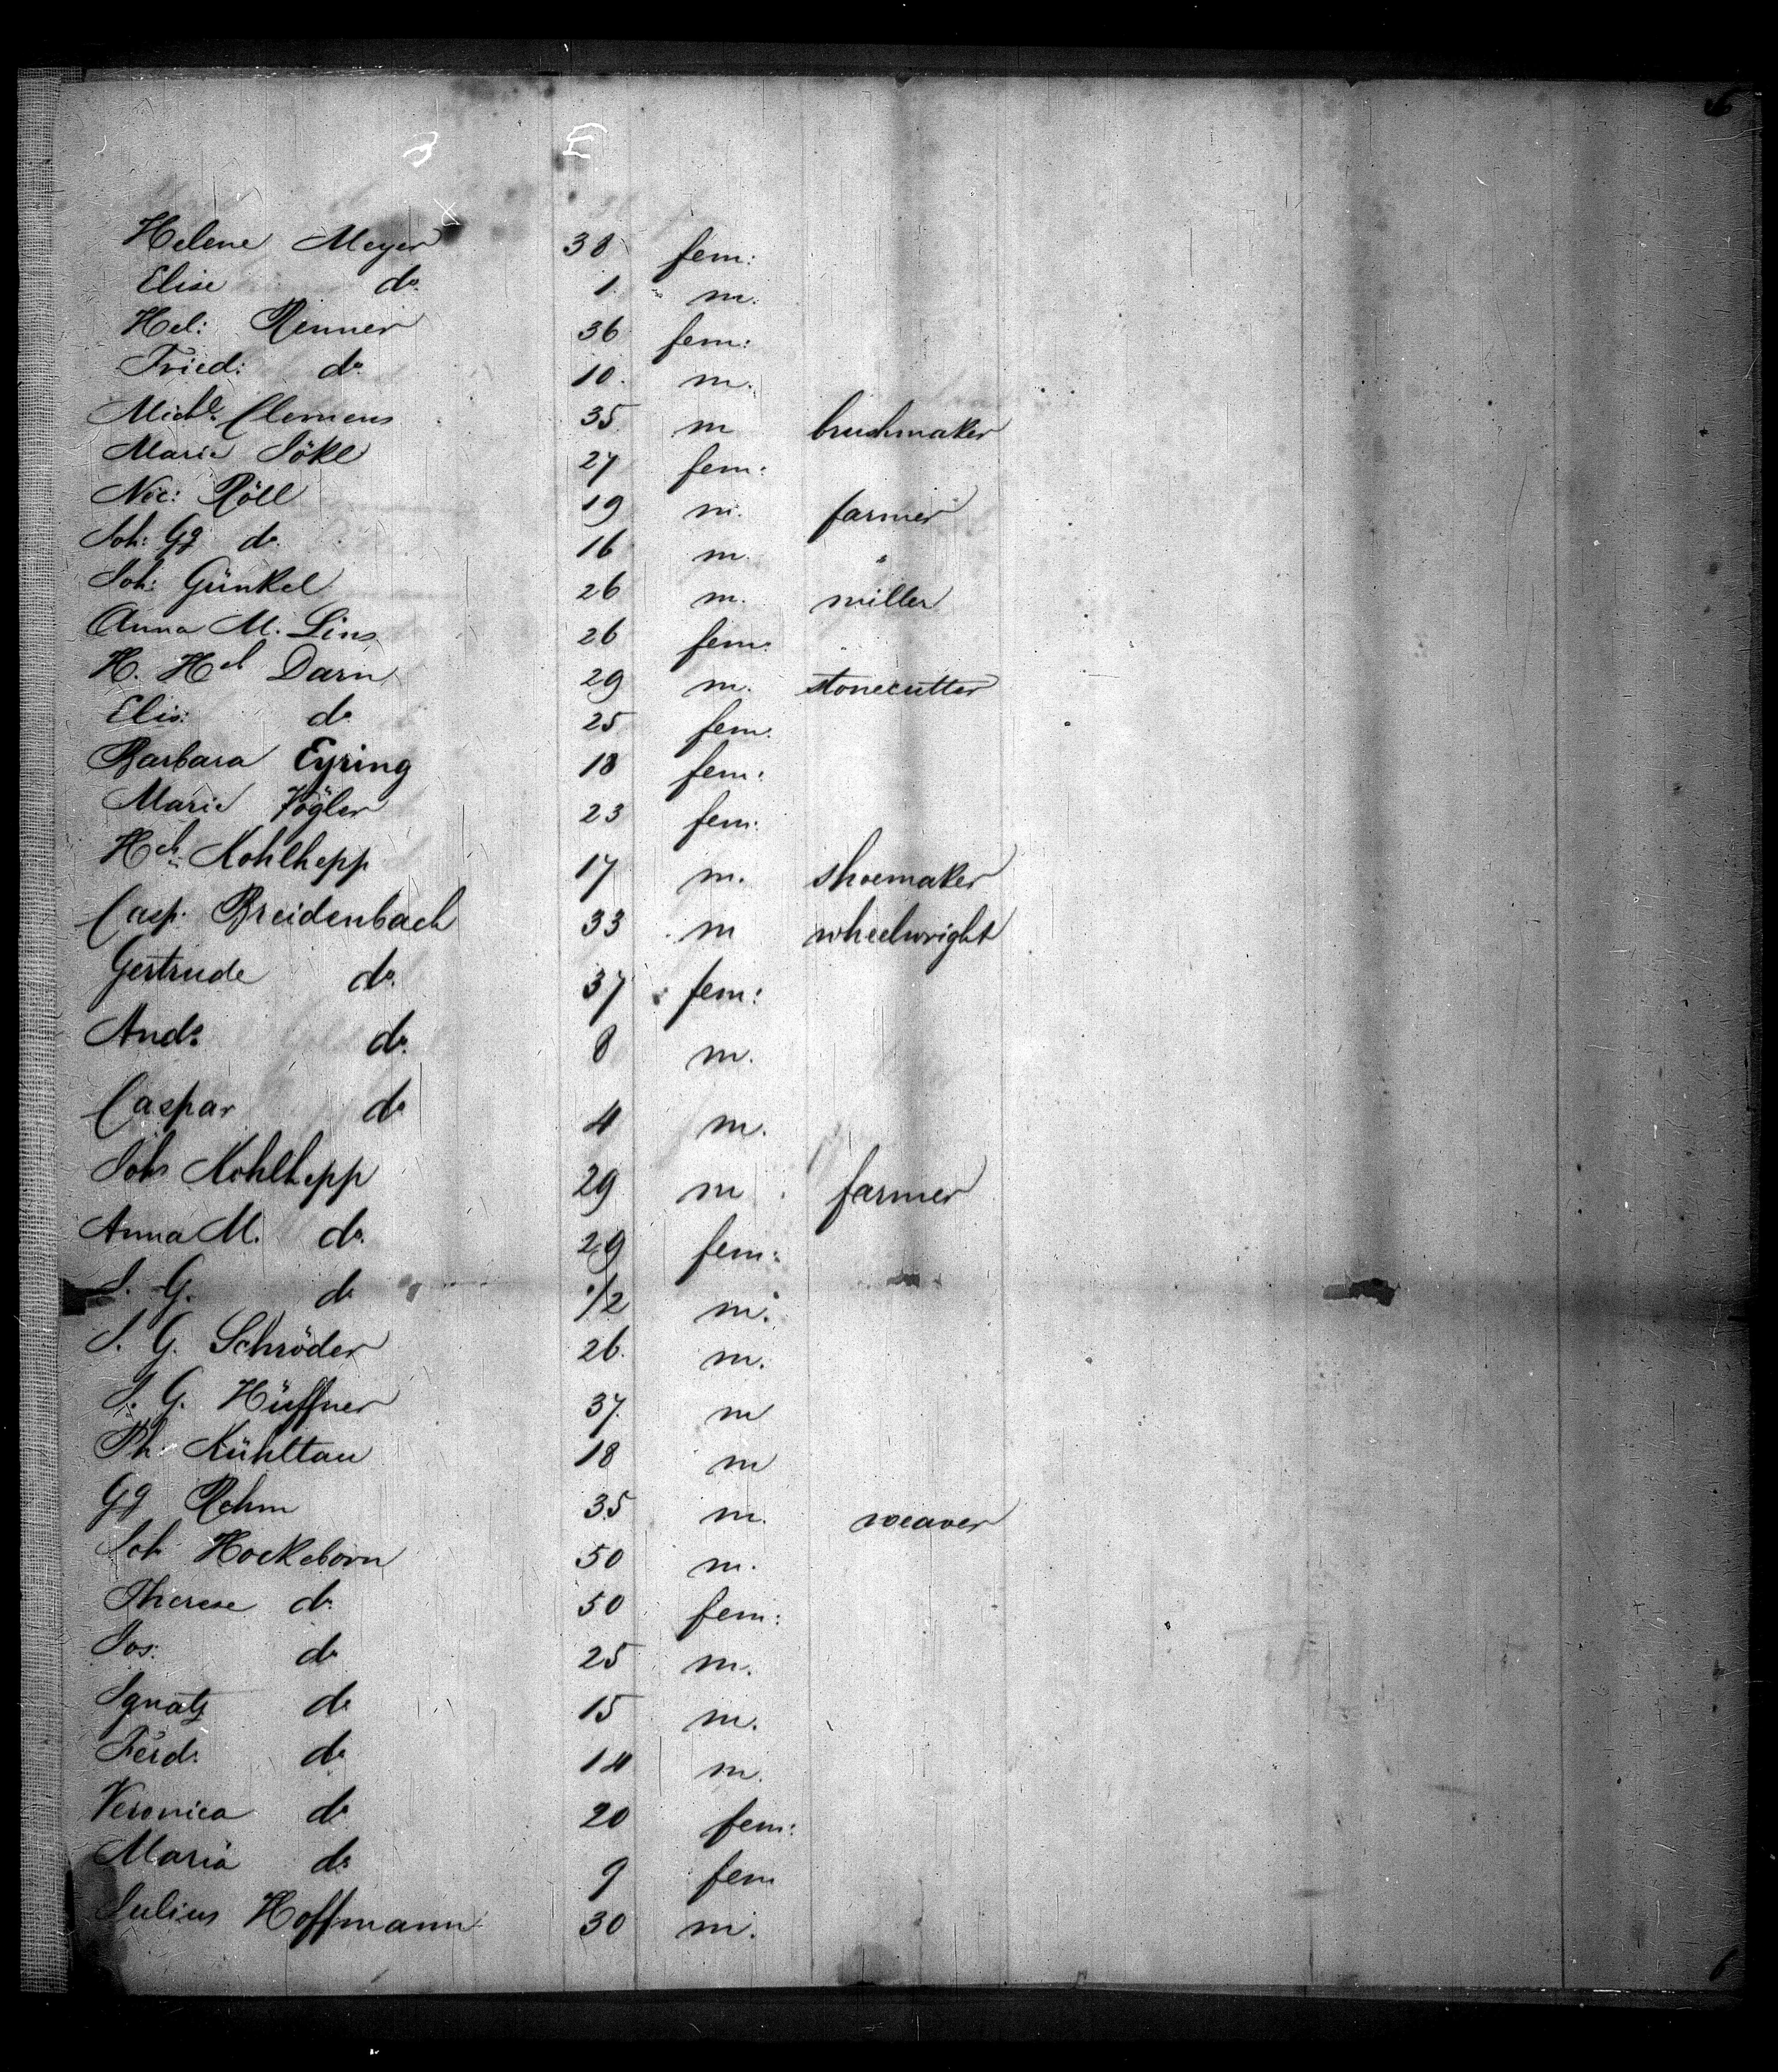 3 E
Helene Meyer 38 fem:
Elise do. 1. m.
Hel: Renner 36 fem:
Fried: do. 10. m.
Michl. Clemens 35 m brushmaker
Marie Sökl 27 fem:
Nic: Röll 19 m. farmer
Joh: Gg do. 16 m. "
Joh: Günkel 26 m. miller
Anna M. Lins 26 fem:
H. Hch Darn 29 m. stonecutter
Elis: do 25 fem:
Barbara Eyring 18 fem:
Marie Vögler 23 fem:
Hch: Kohlhepp 17 m. shoemaker
Casp. Breidenbach 33 m wheelwright
Gertrude do. 37 fem:
Andr. do. 8 m.
Caspar do 4 m.
Johs Kohlhepp 29 m. farmer
Anna M. do. 29 fem:
J. G. do 1/2 m.
J. G. Schröder 26. m.
J. G. Hüffner 37. m
Ph. Kühltau 18 m
Gg Rehm 35 m. weaver
Joh Hockeborn 50 m.
Therese do. 50 fem:
Jos: do 25 m.
Ignatz do 15 m.
Ferd: do. 14 m.
Veronica do 20 fem:
Maria do 9 fem
Julius Hoffmann 30 m.